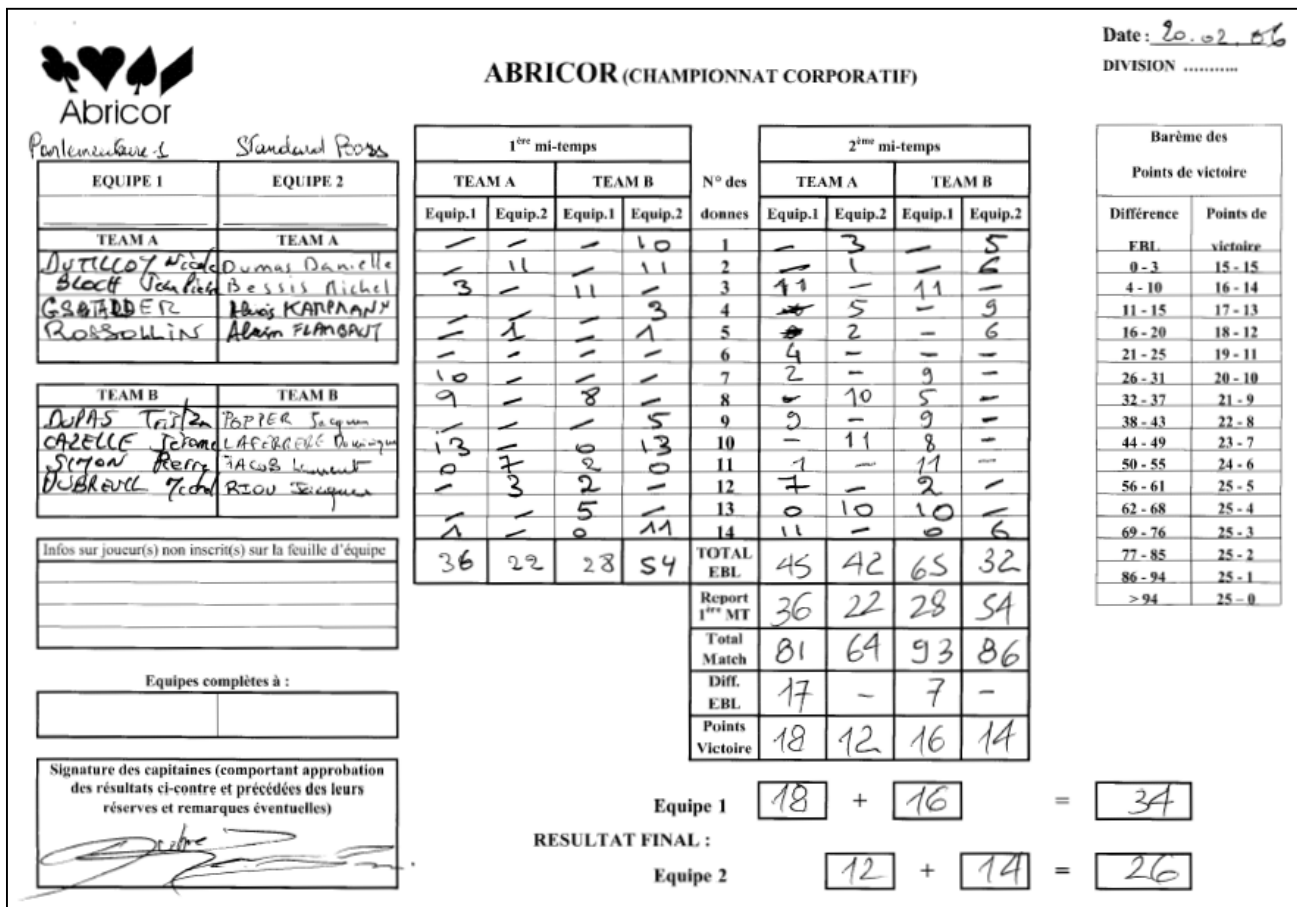 Date : 20.02.06
DIVISION ...........
ABRICOR (CHAMPIONNAT CORPORATIF)
Abricor
Parlementaire 1 Standard Boys
EQUIPE 1 EQUIPE 2
TEAM A TEAM A
DUTILLOY Nicole Dumas Danielle
BLOCH Jean Pierre Bessis Michel
GSTALDER KARMANN
ROSSOLLIN Alain FLAMBAUT
TEAM B TEAM B
DUPAS Tristan POPPER Jacques
CAZELLE Jérome LAFERRERE Dominique
SIMON Pierre JACOB Laurent
DUBREUIL Michel RIOU Jacques
Infos sur joueur(s) non inscrit(s) sur la feuille d'équipe
Equipes complètes à :
Signature des capitaines (comportant approbation
des résultats ci-contre et précédées des leurs
réserves et remarques éventuelles)
1ère mi-temps 2ème mi-temps
TEAM A TEAM B N° des TEAM A TEAM B
Equip.1 Equip.2 Equip.1 Equip.2 donnes Equip.1 Equip.2 Equip.1 Equip.2
– – – 10 1 – 3 – 5
– 11 – 11 2 – 1 – 6
3 – 11 – 3 11 – 11 –
– – – 3 4 5 – 9
– 1 – 1 5 2 – 6
– – – – 6 4 – – –
10 – – – 7 2 – 9 –
9 – 8 – 8 – 10 5 –
– – – 5 9 9 – 9 –
13 – 0 13 10 – 11 8 –
0 7 2 0 11 1 – 11 –
– 3 2 – 12 7 – 2 –
– – 5 – 13 0 10 10 –
1 – 0 11 14 11 – 0 6
36 22 28 54 TOTAL EBL 45 42 65 32
Report 1ère MT 36 22 28 54
Total Match 81 64 93 86
Diff. EBL 17 – 7 –
Points Victoire 18 12 16 14
Equipe 1 18 + 16 = 34
RESULTAT FINAL :
Equipe 2 12 + 14 = 26
Barème des
Points de victoire
Différence Points de
EBL victoire
0 - 3 15 - 15
4 - 10 16 - 14
11 - 15 17 - 13
16 - 20 18 - 12
21 - 25 19 - 11
26 - 31 20 - 10
32 - 37 21 - 9
38 - 43 22 - 8
44 - 49 23 - 7
50 - 55 24 - 6
56 - 61 25 - 5
62 - 68 25 - 4
69 - 76 25 - 3
77 - 85 25 - 2
86 - 94 25 - 1
> 94 25 – 0